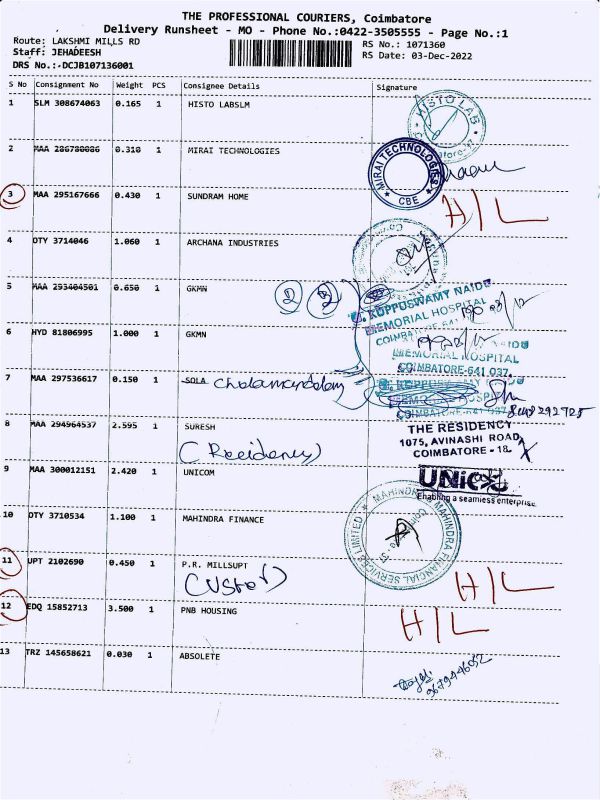 THE PROFESSIONAL COURIERS, Coimbatore
Delivery Runsheet - MO - Phone No.:0422-3505555 - Page No.:1
Route: LAKSHMI MILLS RD RS No.: 1071360
Staff: JEHADEESH RS Date: 03-Dec-2022
DRS No.:-DCJB107136001
S No Consignment No Weight PCS Consignee Details Signature
1 SLM 308674063 0.165 1 HISTO LABSLM
HISTO LAB
2 MAA 286780086 0.310 1 MIRAI TECHNOLOGIES
MIRAI TECHNOLOGIES
CBE
3 MAA 295167666 0.430 1 SUNDRAM HOME H/L
4 DTY 3714046 1.060 1 ARCHANA INDUSTRIES
5 MAA 293404501 0.650 1 GKMN 2 2
G. KUPPUSWAMY NAIDU
MEMORIAL HOSPITAL
6 HYD 81806995 1.000 1 GKMN
MEMORIAL HOSPITAL
COIMBATORE-641 037.
7 MAA 297536617 0.150 1 SOLA Cholamandalam
8 MAA 294964537 2.595 1 SURESH
(Residency)
THE RESIDENCY
1075, AVINASHI ROAD,
COIMBATORE - 18.
9 MAA 300012151 2.420 1 UNICOM
UNIC
Enabling a seamless enterprise
10 DTY 3710534 1.100 1 MAHINDRA FINANCE
MAHINDRA & MAHINDRA FINANCIAL SERVICES LIMITED
11 UPT 2102690 0.450 1 P.R. MILLSUPT H/L
12 EDQ 15852713 3.500 1 PNB HOUSING H/L
13 TRZ 145658621 0.030 1 ABSOLETE